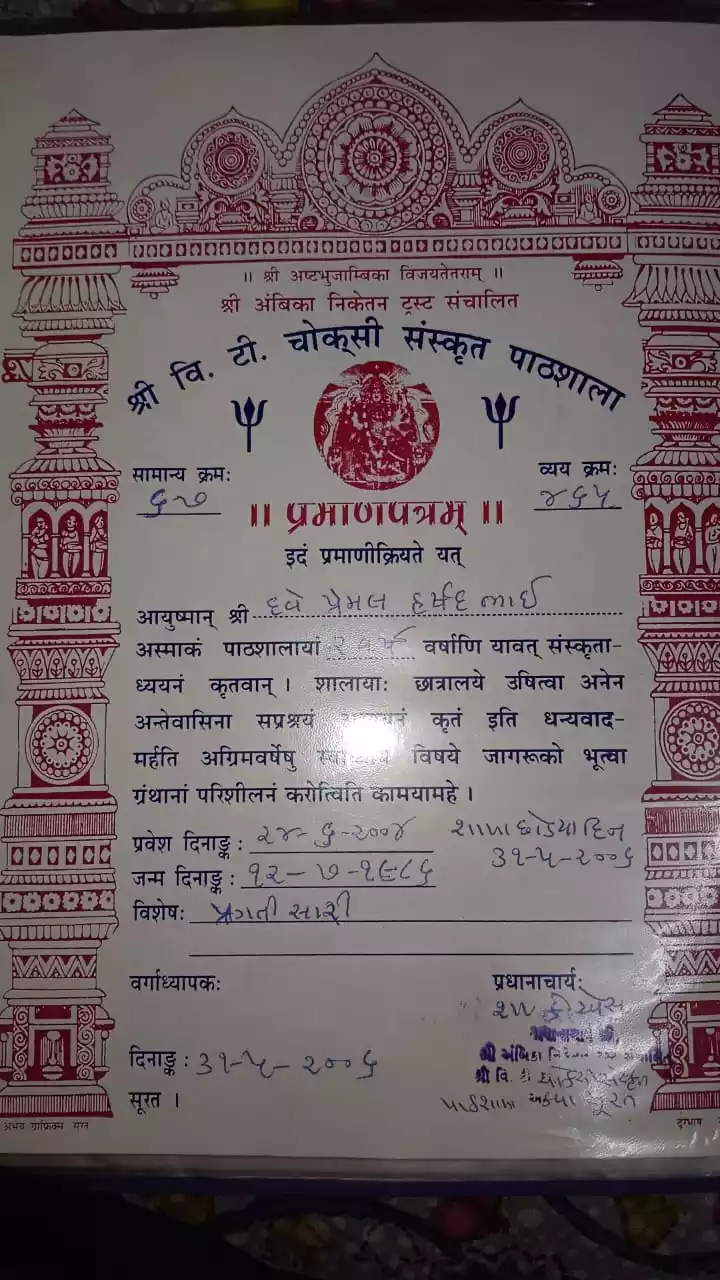 ॥ श्री अष्टभुजाम्बिका विजयतेतराम् ॥
श्री अंबिका निकेतन ट्रस्ट संचालित
श्री वि. टी. चोक्सी संस्कृत पाठशाला
सामान्य क्रमः
व्यय क्रमः
૬૭
૪૬૫
॥ प्रमाणपत्रम् ॥
इदं प्रमाणीक्रियते यत्
आयुष्मान् श्री દવે પ્રેમલ હર્ષદ ભાઈ
अस्माकं पाठशालायां ૨ વર્ષ वर्षाणि यावत् संस्कृता-
ध्ययनं कृतवान् । शालायाः छात्रालये उषित्वा अनेन
अन्तेवासिना सप्रश्रयं कृतं इति धन्यवाद-
मर्हति अग्रिमवर्षेषु विषये जागरूको भूत्वा
ग्रंथानां परिशीलनं करोत्विति कामयामहे ।
प्रवेश दिनाङ्क : ૨૪-૬-૨૦૦૪ શાળા છોડયા દિન
૩૧-૫-૨૦૦૬
जन्म दिनाङ्क : ૧૨-૭-૧૯૮૬
विशेषः પ્રગતી સારી
वर्गाध्यापकः
प्रधानाचार्यः
दिनाङ्क : ૩૧-૫-૨૦૦૬
श्री वि. टी.
सूरत ।
પાઠશાળા
अभय ग्राफिक्स सूरत
दूरभाष